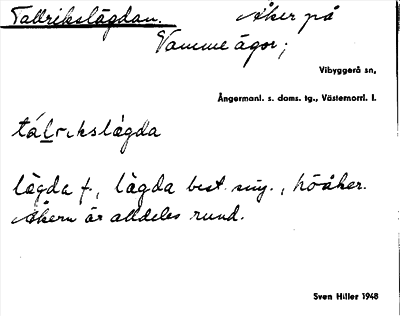 Tallrikslägdan. Åker på
Vamme ägor;
Vibyggerå sn,
Ångermanl. s. doms. tg., Västernorrl. l.
tálrıkslägda
lägda f., lägda best. sing., höåker.
Åkern är alldeles rund.
Sven Hiller 1948